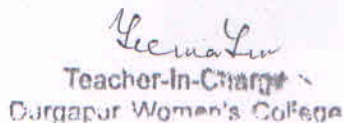 Teacher-In-Charge
Durgapur Women's College